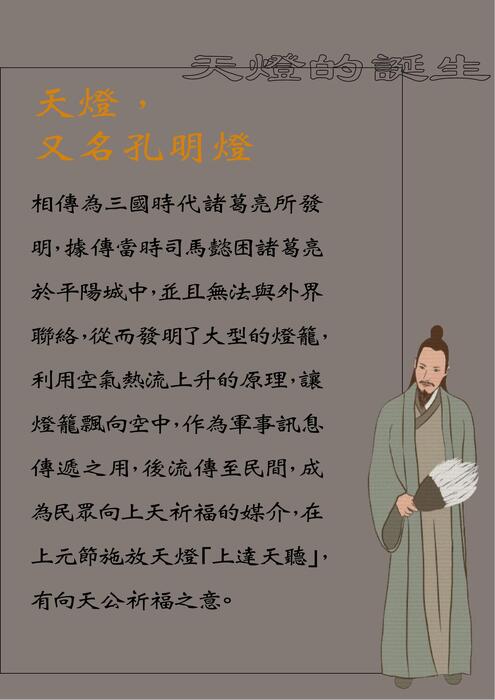 天燈的誕生
天燈，
又名孔明燈
相傳為三國時代諸葛亮所發
明，據傳當時司馬懿困諸葛亮
於平陽城中，並且無法與外界
聯絡，從而發明了大型的燈籠，
利用空氣熱流上升的原理，讓
燈籠飄向空中，作為軍事訊息
傳遞之用，後流傳至民間，成
為民眾向上天祈福的媒介，在
上元節施放天燈「上達天聽」，
有向天公祈福之意。